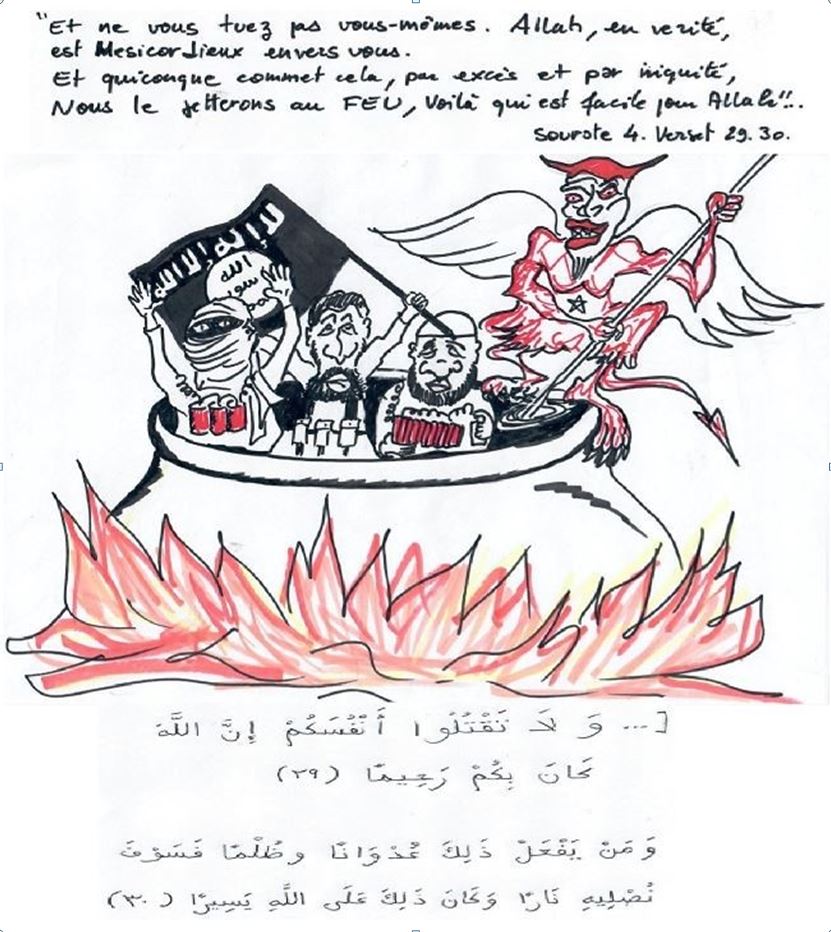 "Et ne vous tuez pas vous-mêmes. Allah, en verité,
est Mesicordieux envers vous.
Et quiconque commet cela, par excès et par iniquité,
Nous le jetterons au FEU, Voilà qui est facile pour Allah"...
Sourote 4. Verset 29.30.
لا إله إلا الله
الله
رسول
[... وَ لَا تَقْتُلُوا أَنْفُسَكُمْ إِنَّ اللَّهَ
كَانَ بِكُمْ رَحِيمًا (٢٩)
وَ مَنْ يَفْعَلْ ذَلِكَ عُدْوَانًا وظُلْمًا فَسَوْفَ
نُصْلِيهِ نَارًا وَكَانَ ذَلِكَ عَلَى اللَّهِ يَسِيرًا (٣٠)